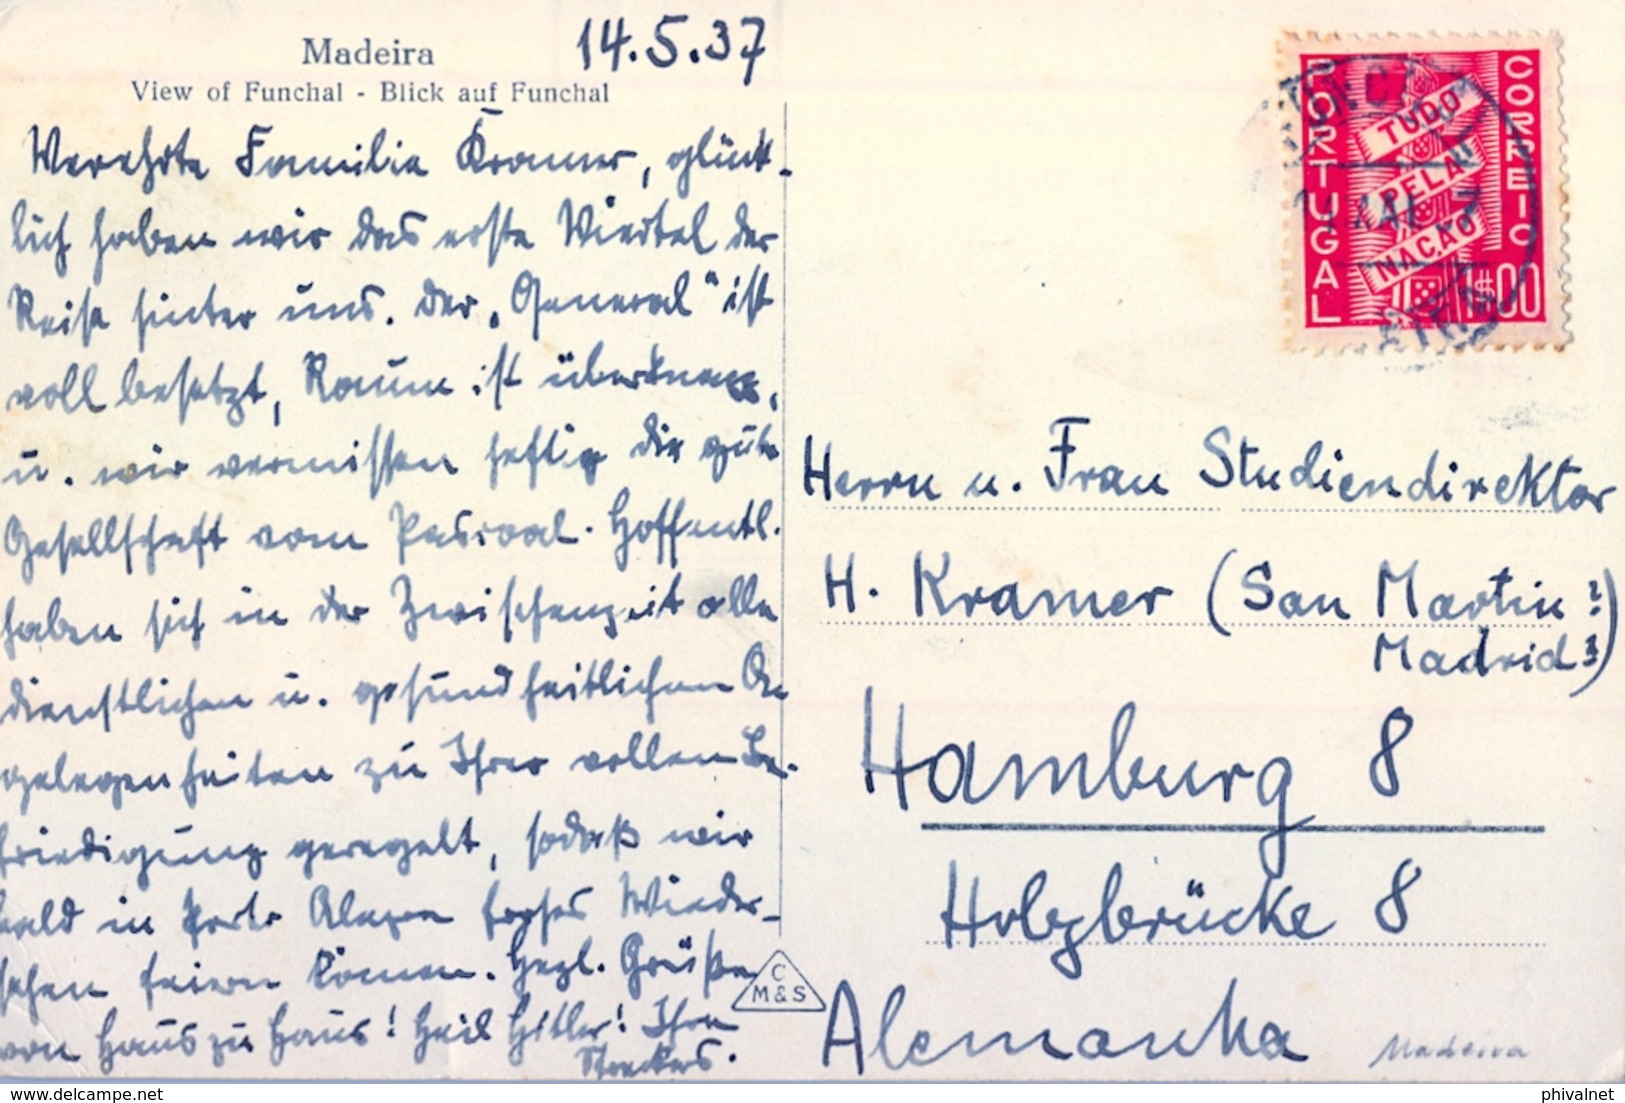 Madeira
View of Funchal - Blick auf Funchal
14.5.37
Verehrte Familie Kramer, glück-
lich haben wir das erste Viertel der
Reise hinter uns. Der „General" ist
voll besetzt, Raum ist überknapp,
u. wir vermissen heftig die gute
Gesellschaft vom Pascoal. Hoffentl.
haben sich in der Zwischenzeit alle
dienstlichen u. gesundheitlichen An
gelegenheiten zu Ihrer vollen Be-
friedigung geregelt, sodaß wir
bald in Porto Alegre frohes Wieder-
sehen feiern können. Herzl. Grüße
von Haus zu Haus! Heil Hitler! Ihre
Streckers.
C
M & S
PORTUGAL
CORREIO
TUDO
PELA
NAÇÃO
1$00
Herrn u. Frau Studiendirektor
H. Kramer (San Martin?
Madrid?)
Hamburg 8
Holzbrücke 8
Alemanha
Madeira
phivalnet